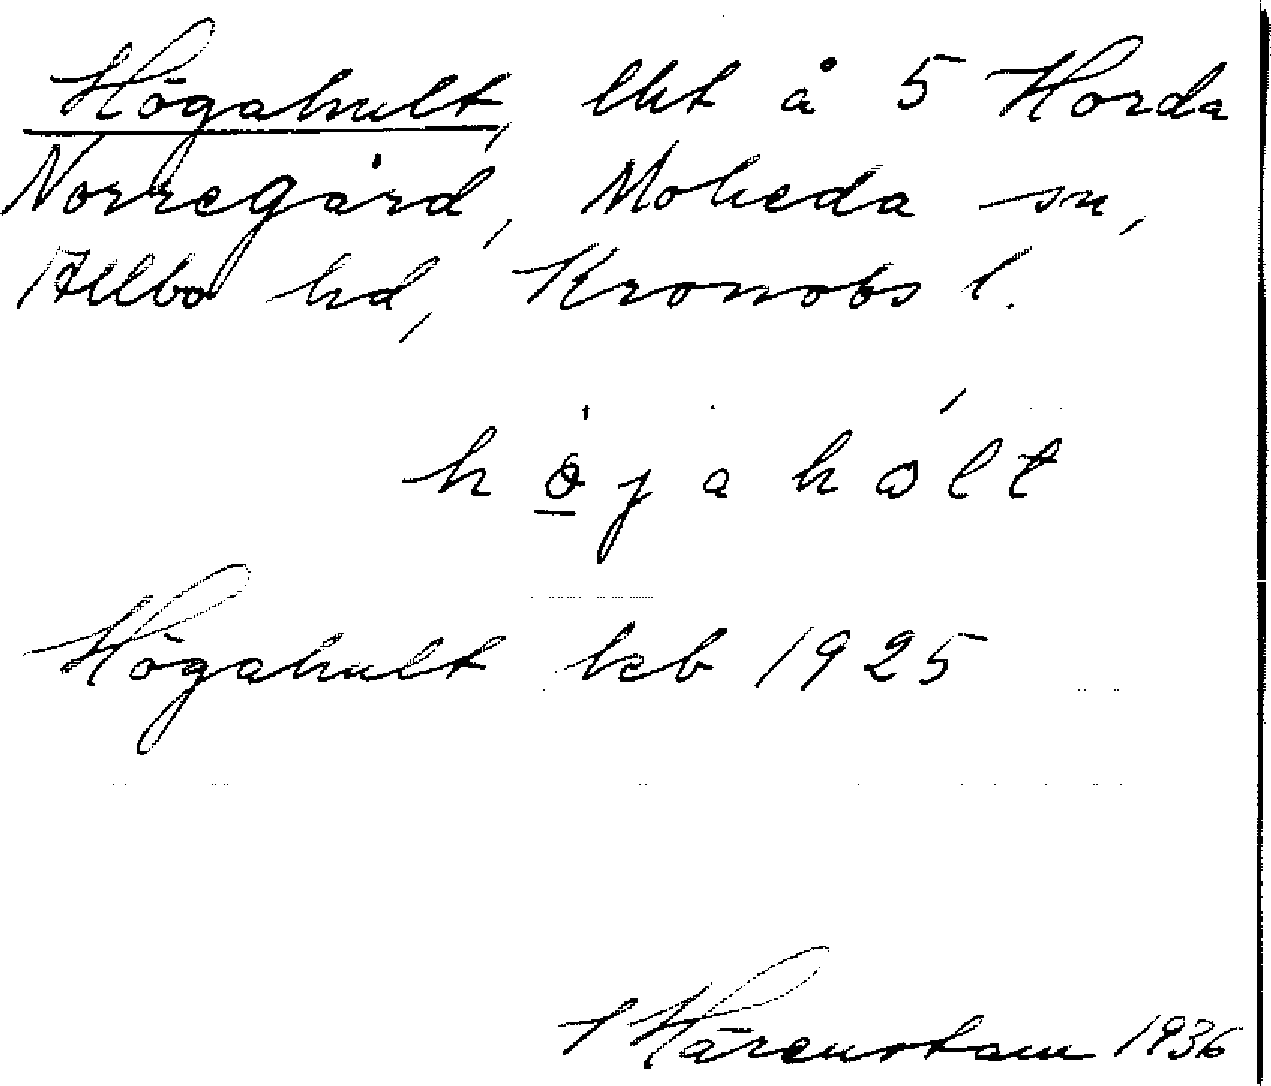 Högahult, lht å 5 Horda
Norregård, Moheda sn,
Allbo hd, Kronobs l.
höjahålt
Högahult keb 1925
Härenstam 1936